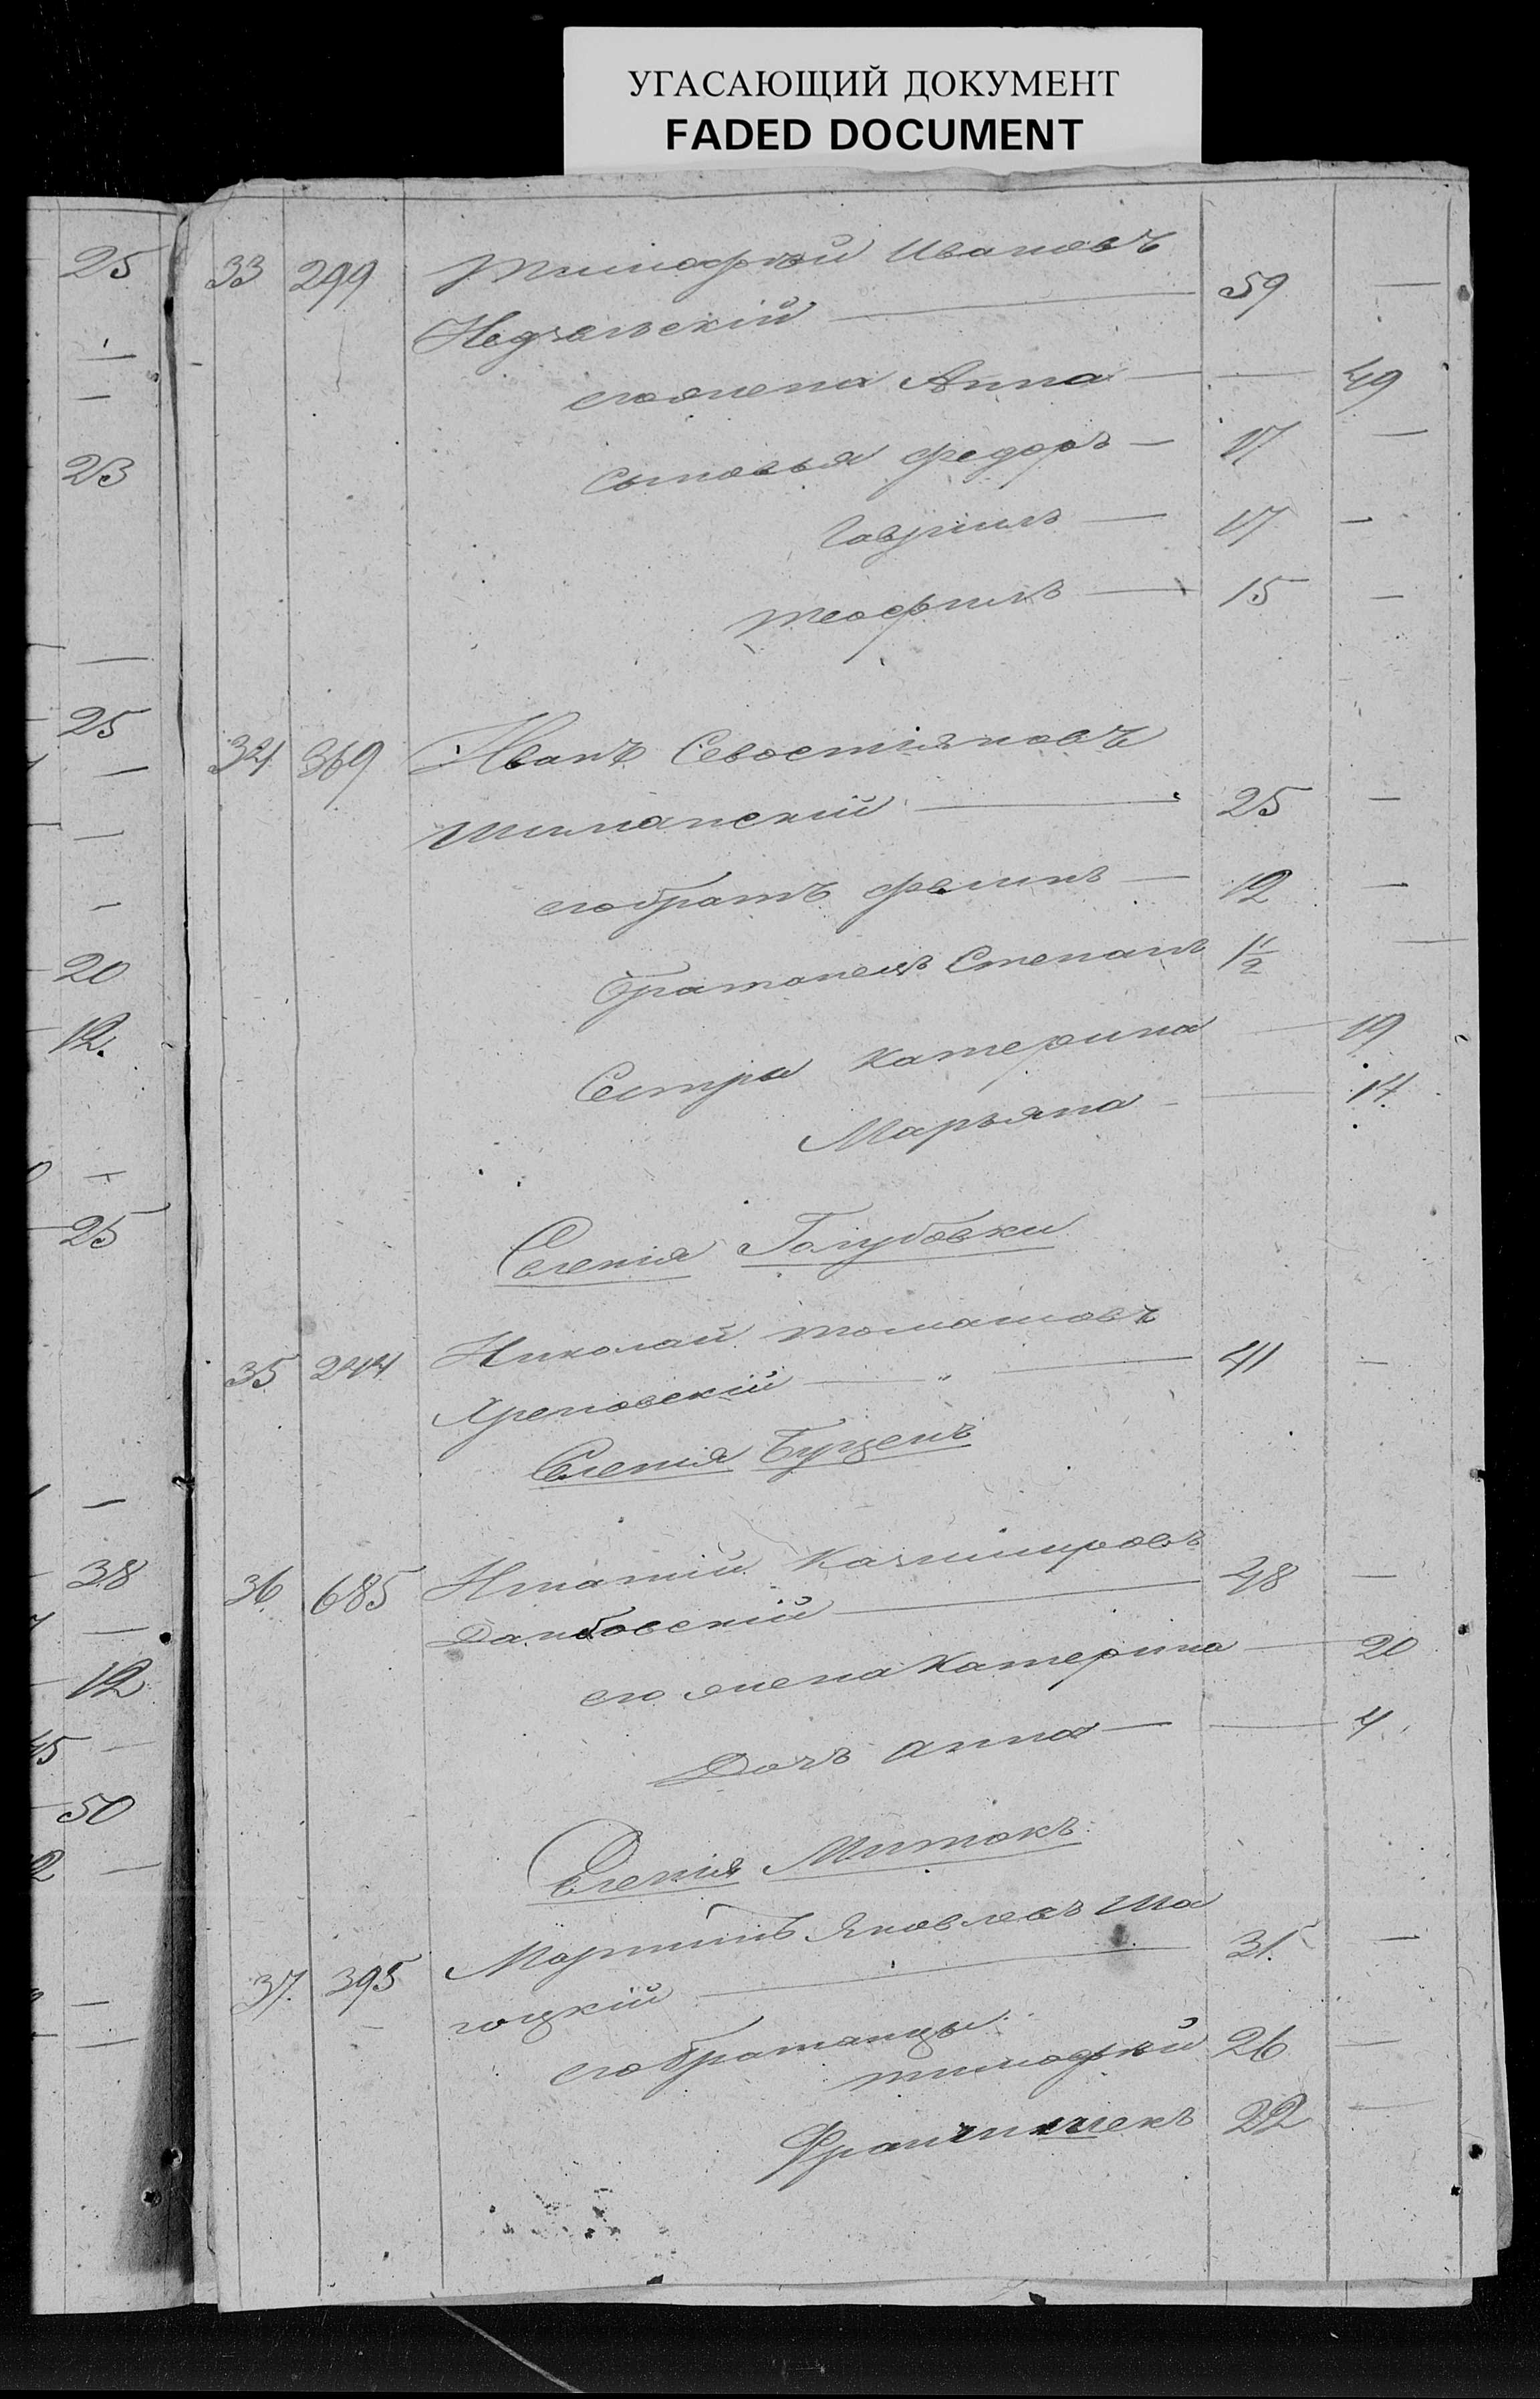 УГАСАЮЩИЙ ДОКУМЕНТ
FADED DOCUMENT
25
—
—
23
—
25
—
—
—
20
12.
—
25
—
38
—
12
45 —
50
2 —
—
—
33 299 Тимофтей Ивановъ
Недзельскій — 59 —
его жена Анна — — 49
Сыновья Федоръ — 17 —
Гаврiилъ — 17 —
Теофилъ — 15 —
34 369 Иванъ Севостіяновъ
Шиманскій — 25 —
его братъ Фелипъ — 12 —
Братанецъ Степанъ 1½ —
Сестры Катерина — 19
Марьяна — 14.
Селенія Голубовки
35 244 Николай Томашовъ
Яреповскій — " — 41 —
Селенія Буцень
36. 685 Игнатій Казимировъ
Данбовскій — 48 —
его жена Катерина — 20
Дочь Анна — — 4
Селенія Митокъ
Мартинъ Яковлевъ Ша
37. 395 гоцкій — 31. —
его братанцы
Тимофтей 26 —
Францишекъ 22 —